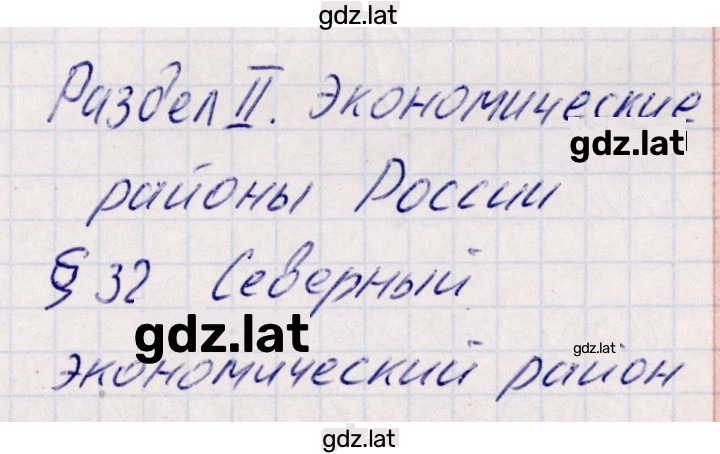 gdz.lat
Раздел II. Экономические
gdz.lat
районы России
§ 32 Северный
gdz.lat
gdz.lat
экономический район
gdz.lat